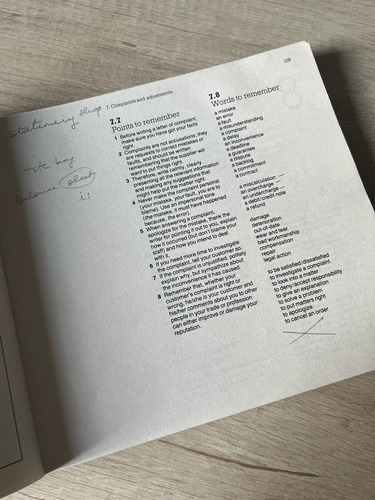 7 Complaints and adjustments
109
stationery shop
tote bag
balance sheet
7.7
Points to remember
1 Before writing a letter of complaint,
make sure you have got your facts
right.
2 Complaints are not accusations; they
are requests to correct mistakes or
faults, and should be written
remembering that the supplier will
want to put things right.
3 Therefore, write calmly, clearly,
presenting all the relevant information
and making any suggestions that
might help put the matter right.
4 Never make the complaint personal
(your mistake, your fault, you are to
blame). Use an impersonal tone
(the mistake, it must have happened
because, the error).
5 When answering a complaint,
apologize for the mistake, thank the
writer for pointing it out to you, explain
how it occurred (but don't blame your
staff) and how you intend to deal
with it.
6 If you need more time to investigate
the complaint, tell your customer so.
7 If the complaint is unjustified, politely
explain why, but sympathize about
the inconvenience it has caused.
8 Remember that, whether your
customer's complaint is right or
wrong, he/she is your customer and
his/her comments about you to other
people in your trade or profession
can either improve or damage your
reputation.
7.8
Words to remember
a mistake
an error
a fault
a misunderstanding
a complaint
a delay
an inconvenience
a deadline
a guarantee
a dispute
a backlog
a consignment
a component
a contract
a miscalculation
an overcharge
an undercharge
a debit/credit note
a refund
damage
deterioration
out-of-date
wear and tear
bad workmanship
compensation
repair
legal action
to be satisfied/dissatisfied
to investigate a complaint
to look into a matter
to deny/accept responsibility
to give an explanation
to solve a problem
to put matters right
to apologize
to cancel an order